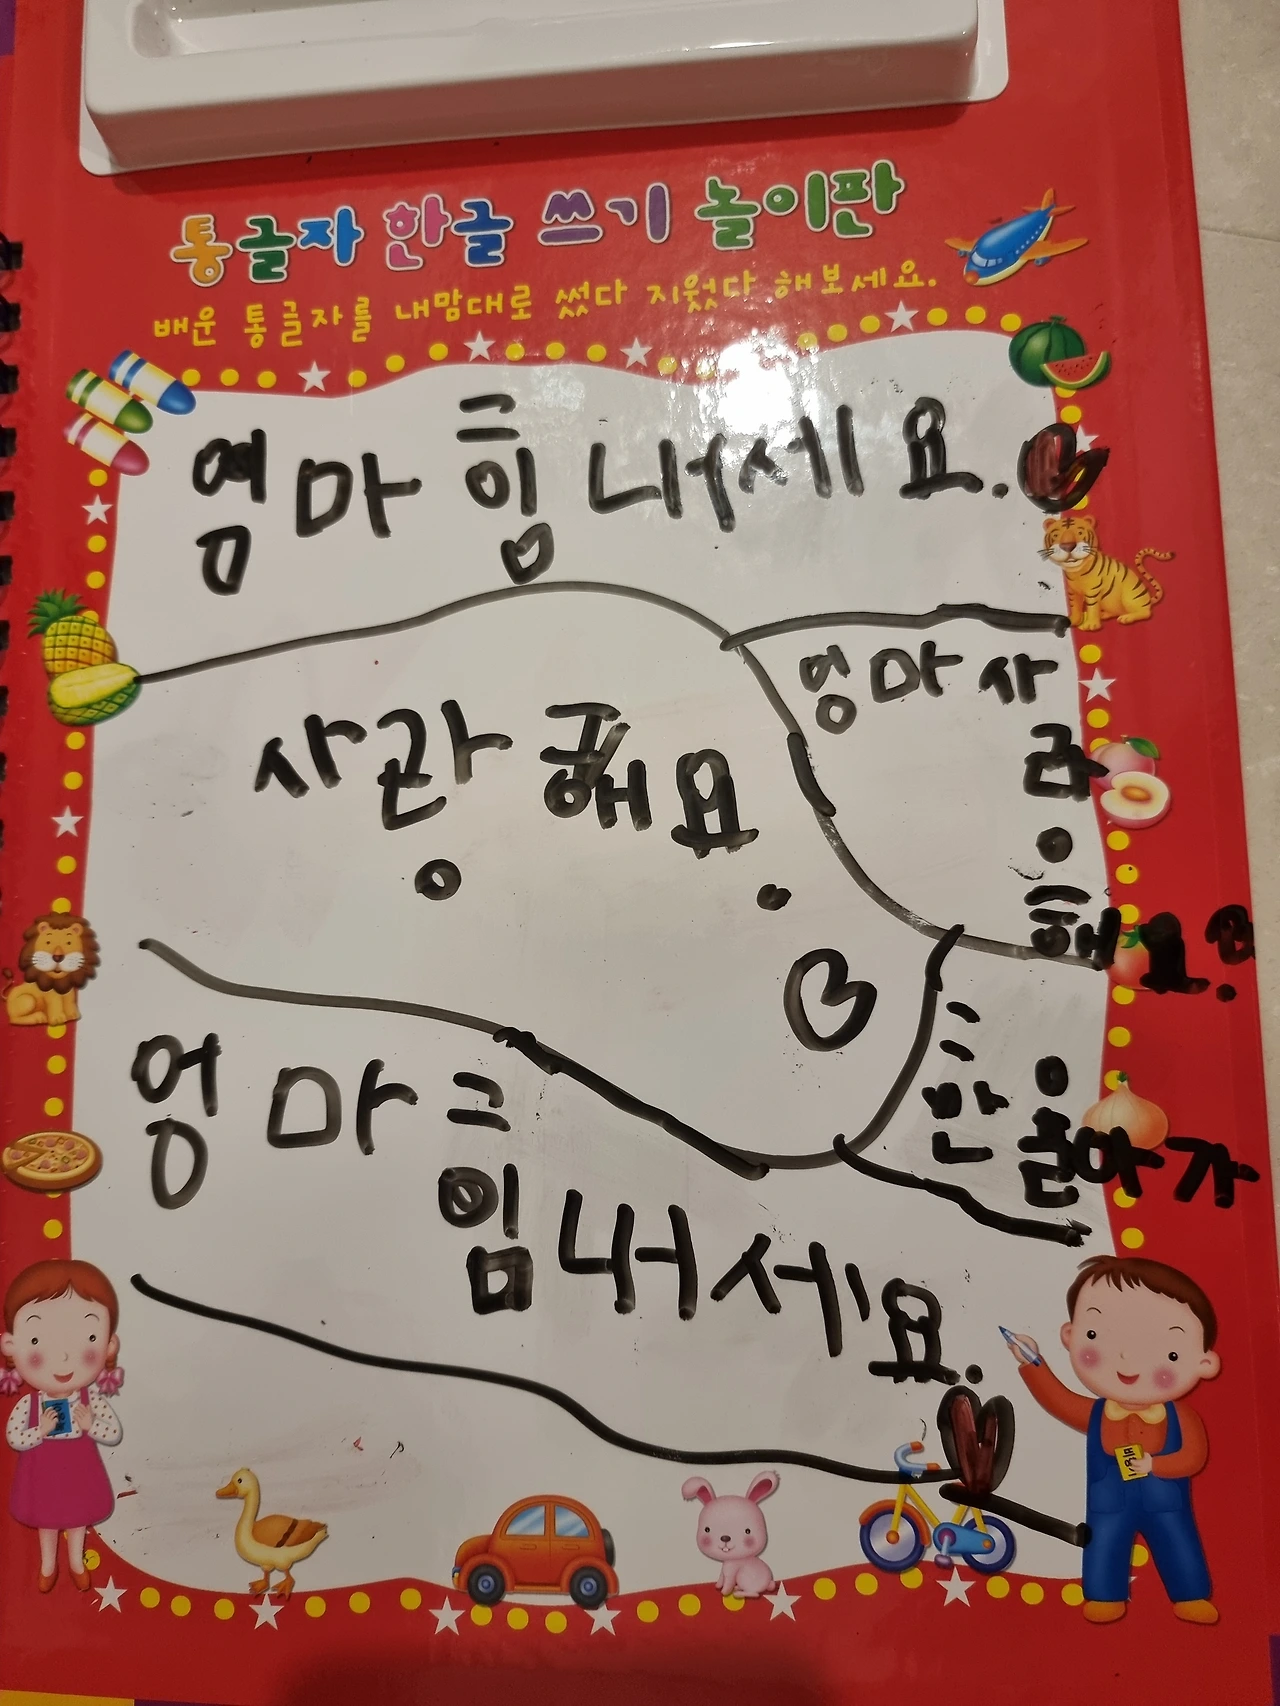 통글자 한글 쓰기 놀이판
배운 통글자를 내맘대로 썼다 지웠다 해보세요.
엄마 힘 내세요.
엄마 사
랑
해요.
사랑해요.
한울아가
엄마 힘
내세요.